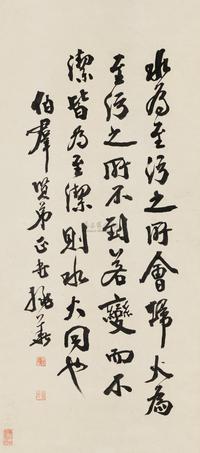 水為至污之所會歸火為
至污之所不到若變而不
潔皆為至潔則水火同也
伯羣賢弟正 姚華